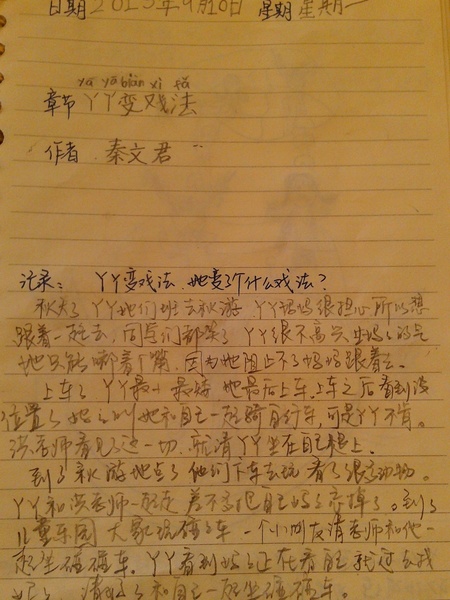 日期2013年9月16日 星期 星期一
yā yā biàn xì fǎ
章节 丫丫变戏法
作者 秦文君
记录: 丫丫变戏法,她变了个什么戏法?
秋天了丫丫她们班去秋游,丫丫妈妈很担心所以想
跟着一起去,同学们都笑了丫丫很不高兴 妈妈
她只能嘟着嘴,因为她阻止不了妈妈跟着去。
上车了丫丫最小最矮她最后上车,上车之后看到没
位置了妈妈叫她和自己一起骑自行车,可是丫丫不肯。
洪老师看见了这一切,就请丫丫坐在自己腿上。
到了秋游地点了他们下车去玩看了很多动物。
丫丫和洪老师一起走差不多把自己妈妈忘掉了。到了
儿童乐园大家玩碰碰车一个小朋友请老师和他一
起坐碰碰车。丫丫看到妈妈正在看自己就过去找
妈妈,请妈妈和自己一起坐碰碰车。